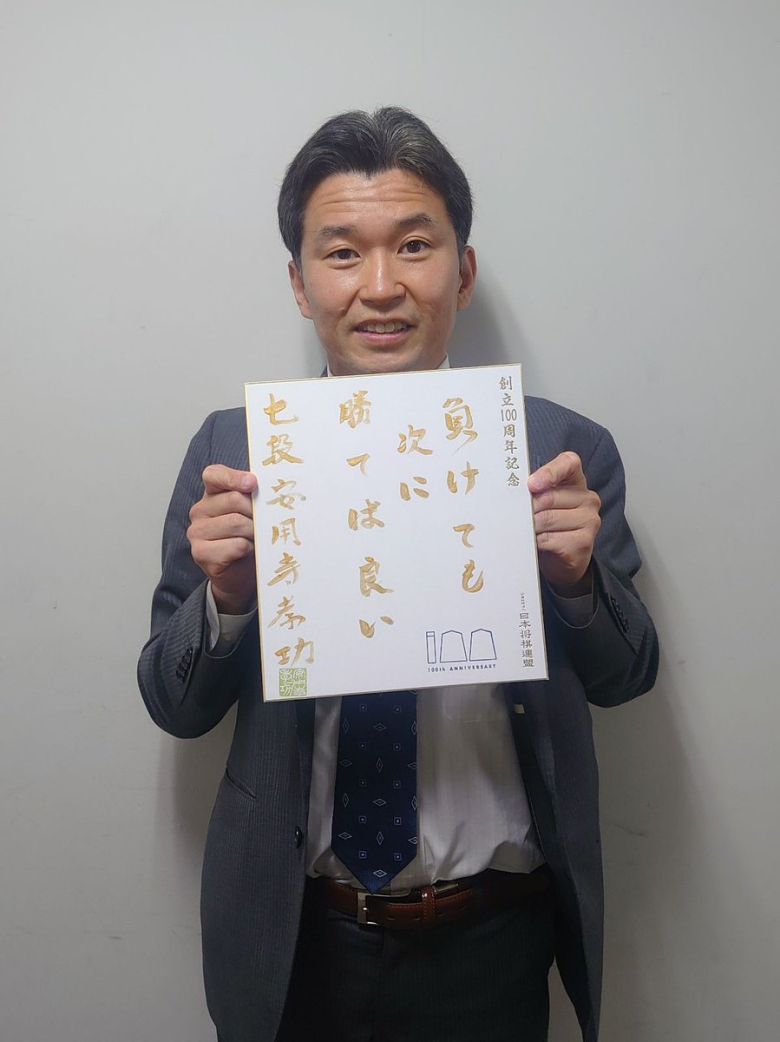 創立100周年記念
負けても
次に
勝てば良い
七段 安用寺孝功
100
100th ANNIVERSARY
日本将棋連盟